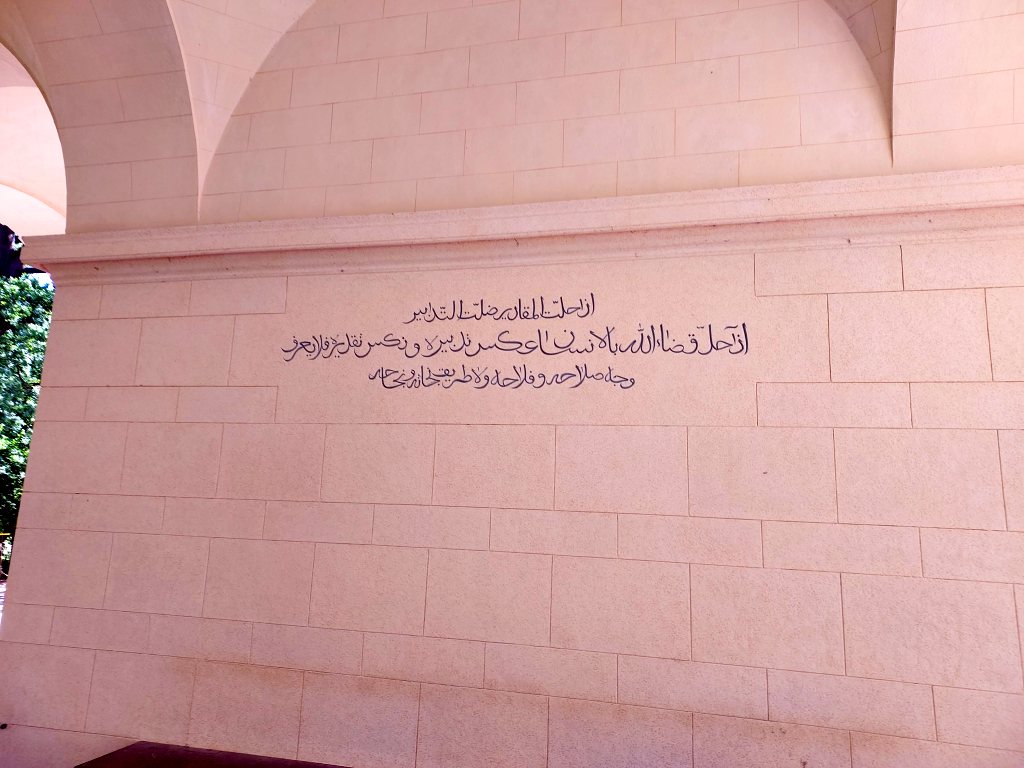 اذا حلّت المقادير ضلّت التّدابير
اذا حلّ قضاء الله بالانسان عكس تدبيره و نكس تقديره فلا يعرف
وجه صلاحه و فلاحه ولا طريق نجاته و نجاحه